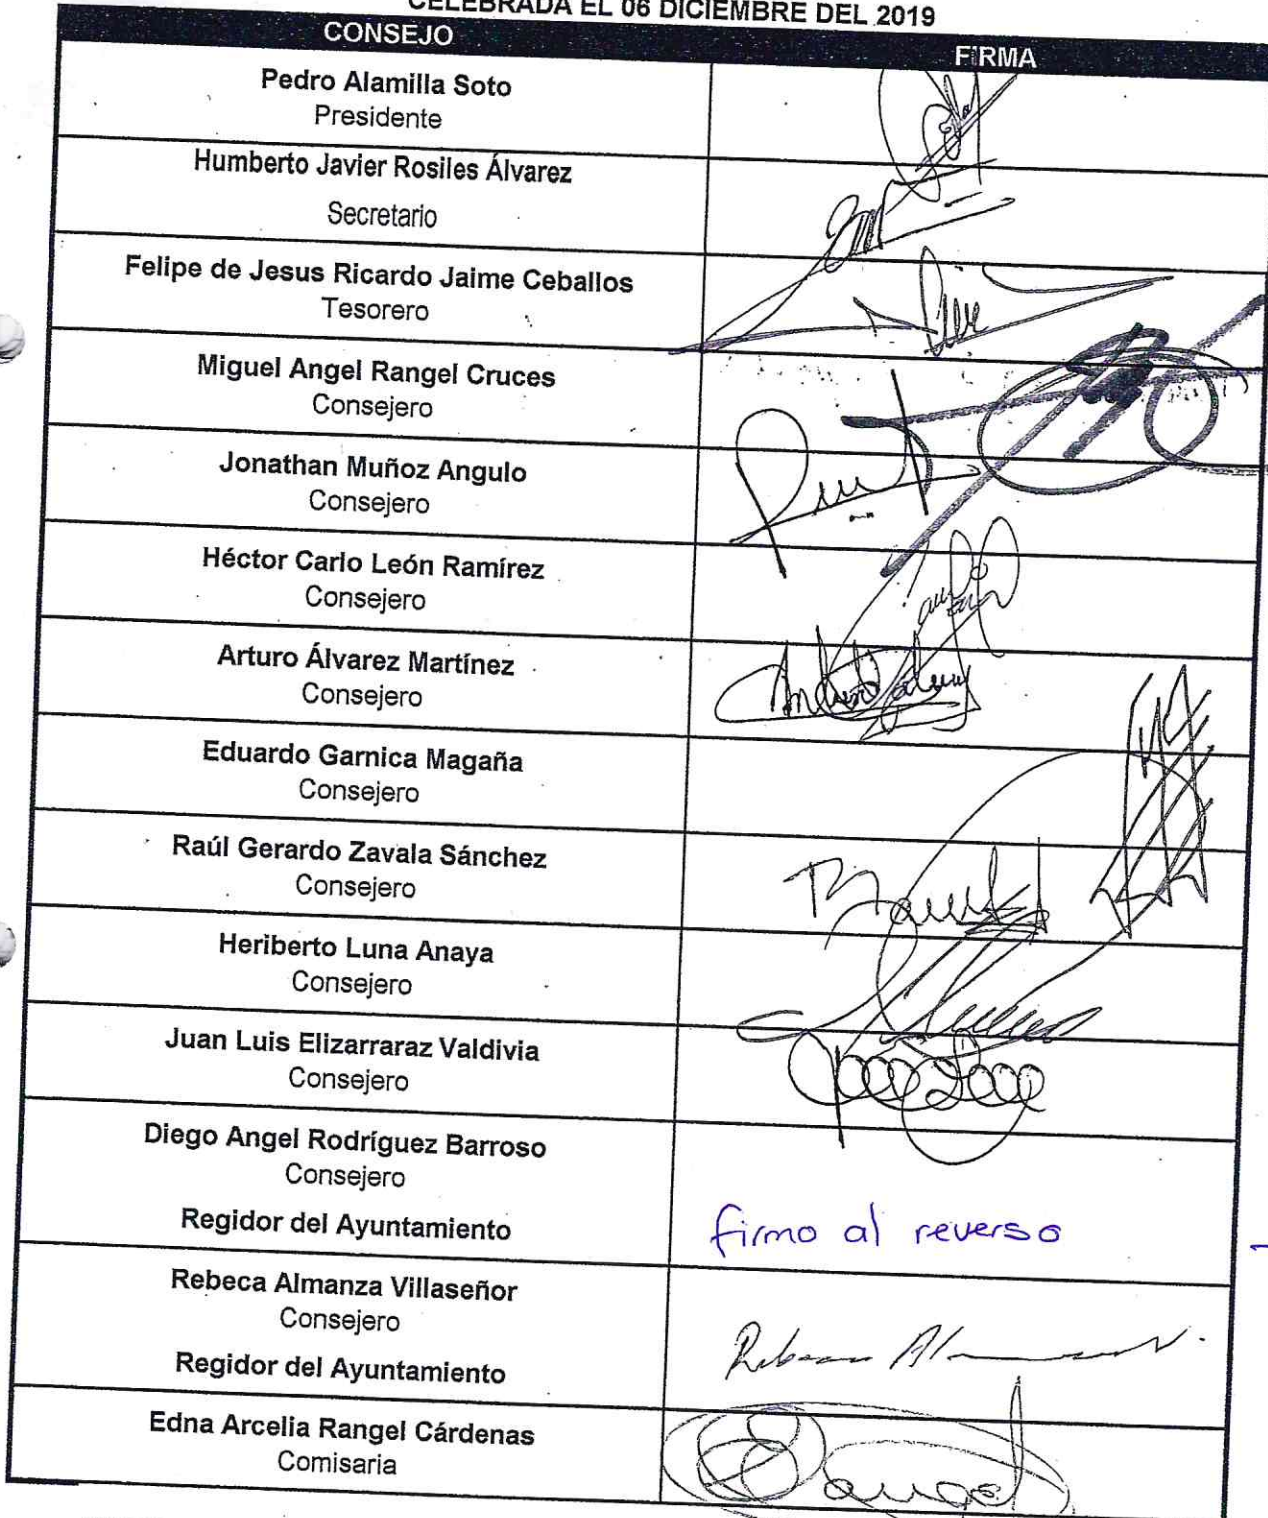 CELEBRADA EL 06 DICIEMBRE DEL 2019
CONSEJO FIRMA
Pedro Alamilla Soto
Presidente
Humberto Javier Rosiles Álvarez
Secretario
Felipe de Jesus Ricardo Jaime Ceballos
Tesorero
Miguel Angel Rangel Cruces
Consejero
Jonathan Muñoz Angulo
Consejero
Héctor Carlo León Ramírez
Consejero
Arturo Álvarez Martínez
Consejero
Eduardo Garnica Magaña
Consejero
Raúl Gerardo Zavala Sánchez
Consejero
Heriberto Luna Anaya
Consejero
Juan Luis Elizarraraz Valdivia
Consejero
Diego Angel Rodríguez Barroso
Consejero
Regidor del Ayuntamiento
firmo al reverso
Rebeca Almanza Villaseñor
Consejero
Regidor del Ayuntamiento
Edna Arcelia Rangel Cárdenas
Comisaria